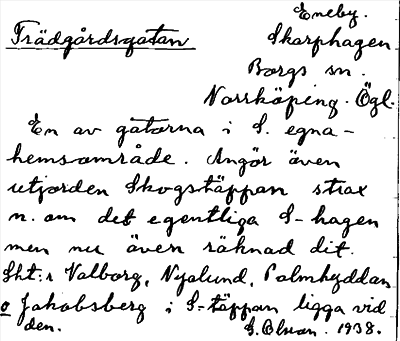 Eneby.
Trädgårdsgatan
Skarphagen
Borgs sn.
Norrköping. Ögl.
En av gatorna i S. egna-
hemsområde. Angör även
utjorden Skogstäppan strax
n. om det egentliga S-hagen
men nu även räknad dit.
Sht:r Valborg, Nyalund, Palmhyddan
o Jakobsberg i S-täppan ligga vid
den.
1938.